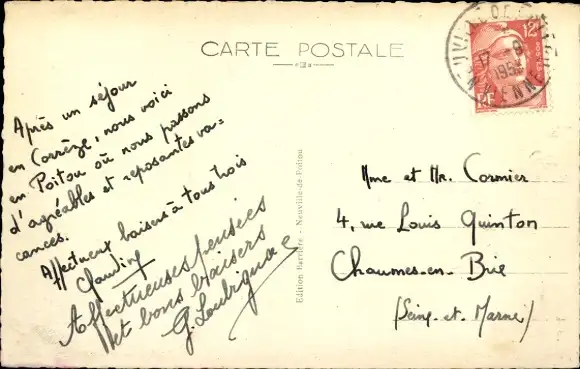 CARTE POSTALE
12
17 -8
195
VIENNE
Après un séjour
en Corrèze, nous voici
en Poitou où nous passons
d'agréables et reposantes va-
cances.
Affectueux baisers à tous trois
Claudine
Affectueuses pensées
et bons baisers
G. Loubignac
Edition Barrière - Neuville-de-Poitou
Mme et Mr. Cormier
4, rue Louis Quinton
Chaumes-en-Brie
(Seine-et-Marne)